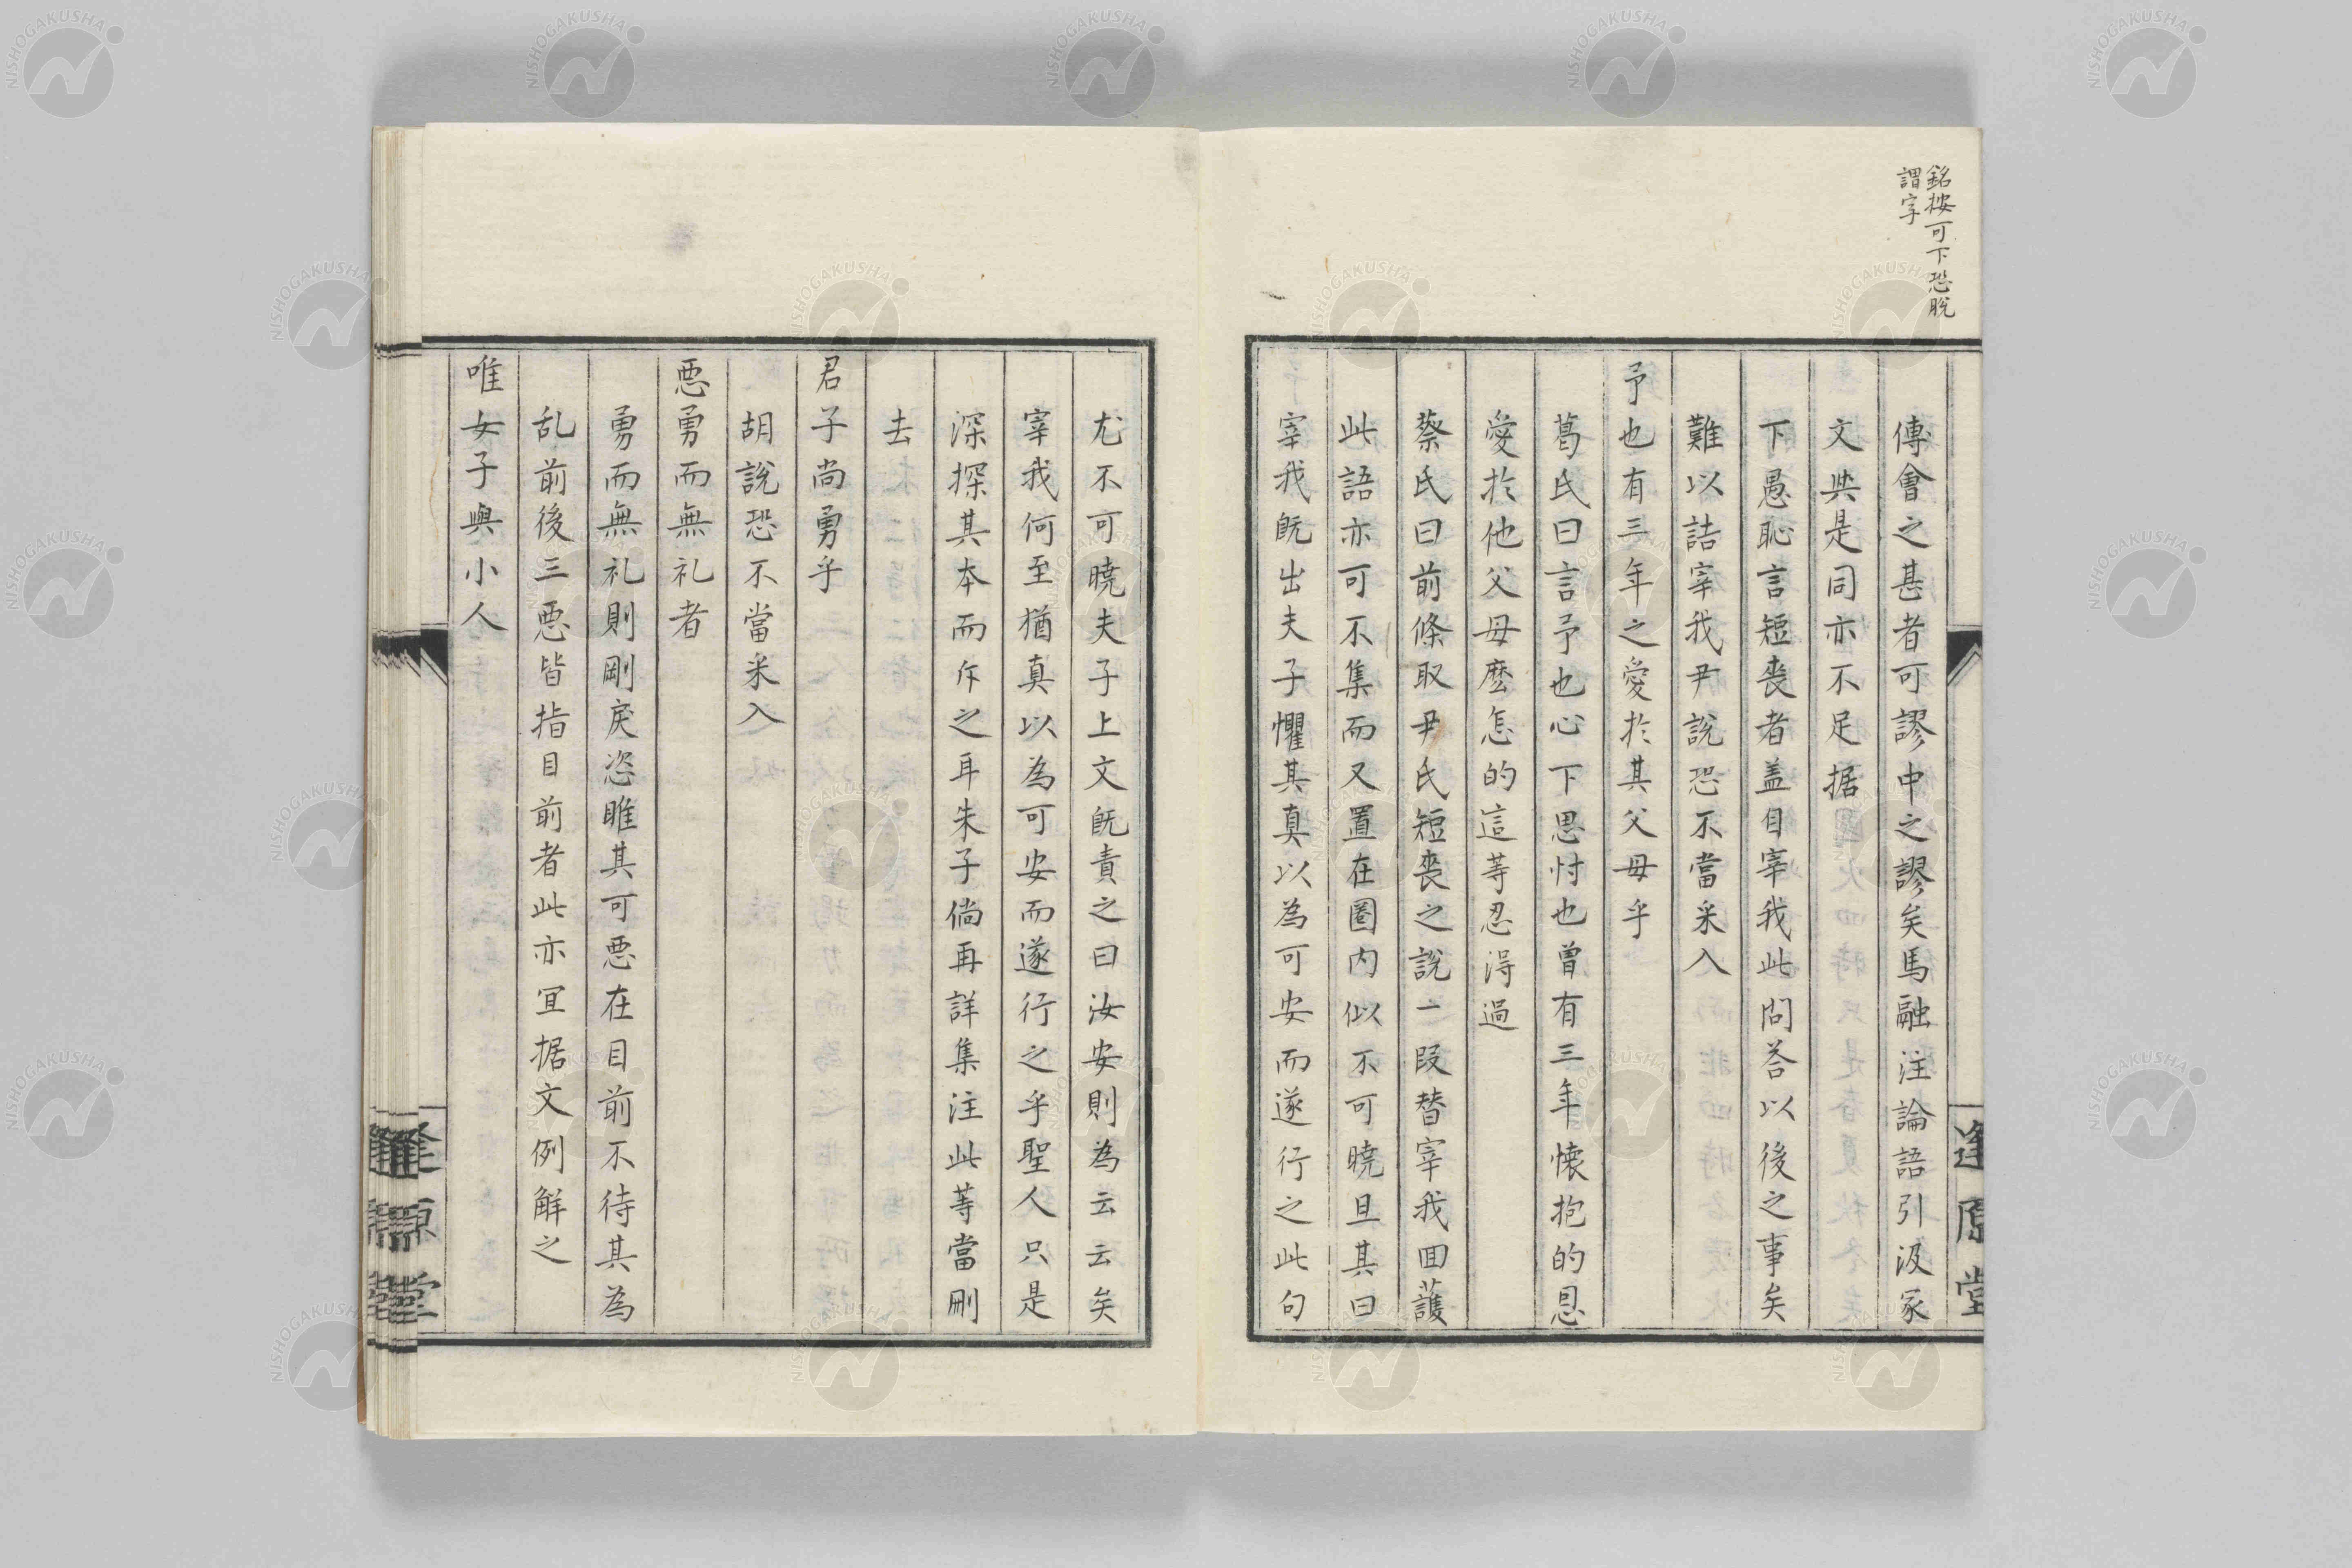 銘按可下恐脫
謂字
傅會之甚者可謬中之謬矣馬融注論語引汲冢
文与是同亦不足据
下愚恥言短喪者盖自宰我此問荅以後之事矣
難以詰宰我尹說恐不當采入
予也有三年之愛於其父母乎
葛氏曰言予也心下思忖也曽有三年懐抱的恩
愛於他父母麽怎的這等忍得過
蔡氏曰前條取尹氏短喪之說一段替宰我囬護
此語亦可不集而又置在圏内似不可曉且其曰
宰我既出夫子懼其真以為可安而遂行之此句
尤不可曉夫子上文既責之曰汝安則為云云矣
宰我何至猶真以為可安而遂行之乎聖人只是
深探其本而斥之耳朱子倘再詳集注此等當刪
去
君子尚勇乎
胡說恐不當采入
悪勇而無礼者
勇而無礼則剛戾恣睢其可悪在目前不待其為
乱前後三悪皆指目前者此亦冝据文例解之
唯女子與小人
逢原堂
逢原堂
NISHOGAKUSHA